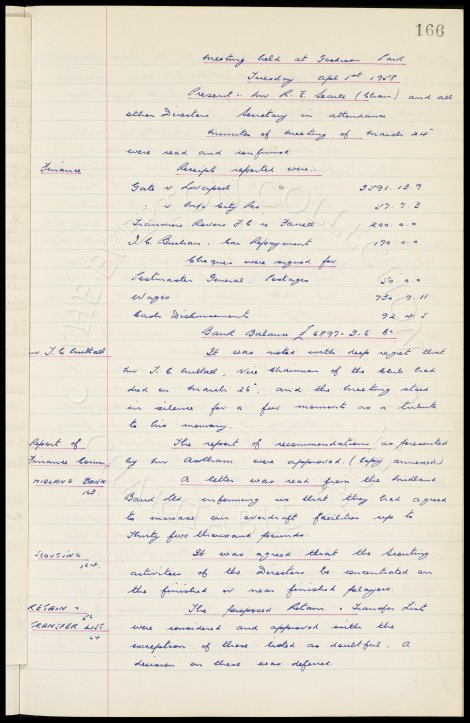 166
Meeting held at Goodison Park
Tuesday Apl 1st 1958.
Present:- Mr R. E. Searle (Chair) and all
other Directors Secretary in attendance
Minutes of Meeting of March 24"
were read and confirmed
Finance Receipts reported were:-
Gate v Liverpool 2591.13.9
" v M/c City Res 57.7.3
Tranmere Rovers F C re Farrell 200.0.0
J. C. Buchan. Car Repayment 170.0.0
Cheques were signed for
Postmaster General. Postages 50.0.0
Wages 730.9.11
Cash Disbursements 92.4.5
Bank Balance £6897.3.6 Cr
Mr T. C. Nuttall It was noted with deep regret that
Mr T. C. Nuttall, Vice Chairman of the Club had
died on March 26", and the Meeting stood
in silence for a few moments as a tribute
to his memory.
Report of The report of recommendations as presented
Finance Comm. by Mr Ashtham were approved. (Copy annexed)
MIDLAND BANK A letter was read from the Midland
163. Bank Ltd informing us that they had agreed
to increase our overdraft facilities up to
thirty five thousand pounds.
SCOUTING It was agreed that the Scouting
124. activities of the Directors be concentrated on
the finished or near finished players.
RETAIN & The proposed Retain & Transfer List
TRANSFER LIST were considered and approved with the
64 exception of those listed as doubtful. A
decision on these was deferred.
THE EVERTON COLLECTION